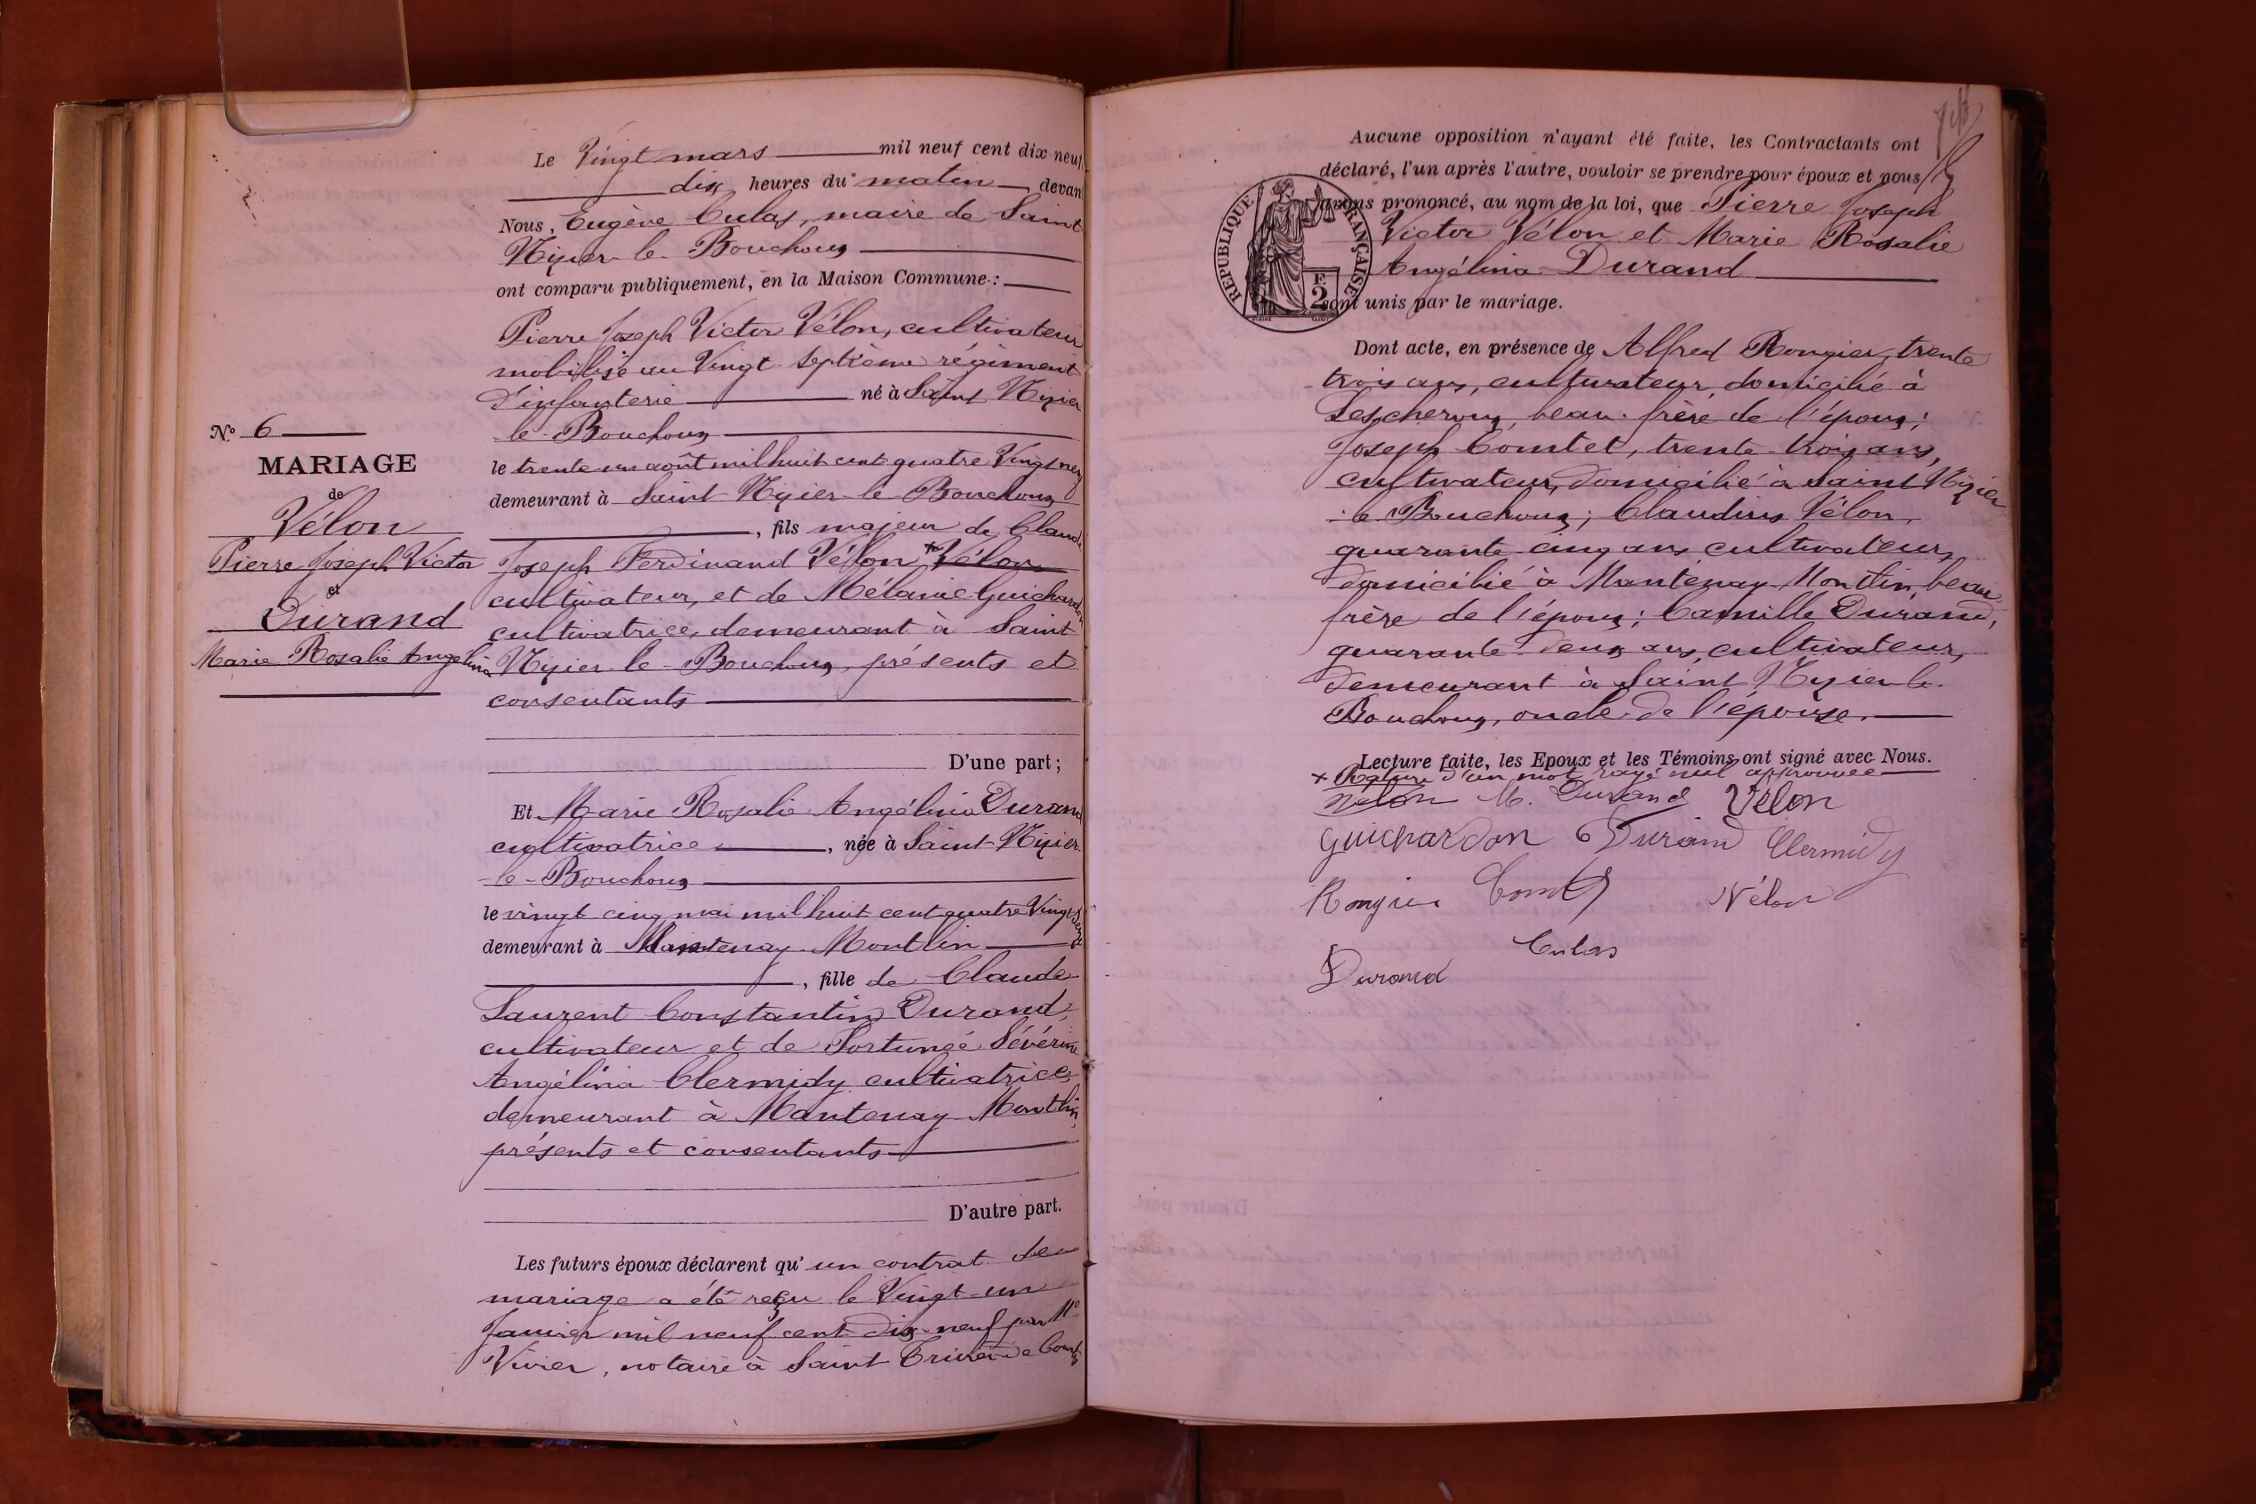 Le Vingt mars mil neuf cent dix neuf
dix heures du matin, devan
Nous, Eugène Culas, maire de Saint
Nizier-le-Bouchoux
ont comparu publiquement, en la Maison Commune :
Pierre Joseph Victor Vélon, cultivateur
mobilisé au Vingt-septième régiment
d'infanterie né à Saint Nizier
le-Bouchoux
le trente un août mil huit cent quatre Vingt neuf
demeurant à Saint Nizier-le-Bouchoux
, fils majeur de Claude
Joseph Ferdinand Vélon × Vélon
cultivateur, et de Mélanie Guichardon
cultivatrice, demeurant à Saint
Nizier-le-Bouchoux, présents et
consentants
D'une part ;
Et Marie Rosalie Angélina Durand
cultivatrice, née à Saint-Nizier
-le-Bouchoux
le vingt cinq mai mil huit cent quatre Vingt
demeurant à Mantenay-Montlin
, fille de Claude
Laurent Constantin Durand,
cultivateur et de Fortunée Sévérine
Angélina Clermidy cultivatrice,
demeurant à Mantenay-Montlin,
présents et consentants
D'autre part.
Les futurs époux déclarent qu'un contrat de
mariage a été reçu le Vingt-un
Janvier mil neuf cent dix-neuf par Me
Vivier, notaire à Saint Trivier de Courtes
No 6
MARIAGE
de
Vélon
Pierre Joseph Victor
et
Durand
Marie Rosalie Angélina
Aucune opposition n'ayant été faite, les Contractants ont
déclaré, l'un après l'autre, vouloir se prendre pour époux et nous
avons prononcé, au nom de la loi, que Pierre Joseph
Victor Vélon et Marie Rosalie
Angélina Durand
sont unis par le mariage.
RÉPUBLIQUE FRANÇAISE
F.
2
Dont acte, en présence de Alfred Rongier, trente
trois ans, cultivateur, domicilié à
Lescheroux, beau-frère de l'époux ;
Joseph Comtet, trente-trois ans,
cultivateur, domicilié à Saint Nizier
le-Bouchoux ; Claudius Vélon,
quarante-cinq ans, cultivateur,
domicilié à Mantenay-Montlin, beau
frère de l'époux ; Camille Durand,
quarante-deux ans, cultivateur,
demeurant à Saint Nizier-le-
Bouchoux, oncle de l'épouse.
Lecture faite, les Epoux et les Témoins ont signé avec Nous.
× Rature d'un mot rayé nul approuvée
Vélon M. Durand Vélon
Guichardon Durand Clermidy
Rongier Comtet Vélon
Culas
Durand